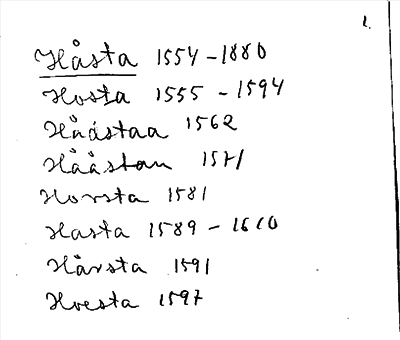 1.
Håsta 1554-1880
Hosta 1555-1594
Hååstaa 1562
Hååstan 1571
Horsta 1581
Hasta 1589-1610
Hårsta 1591
Hoesta 1597